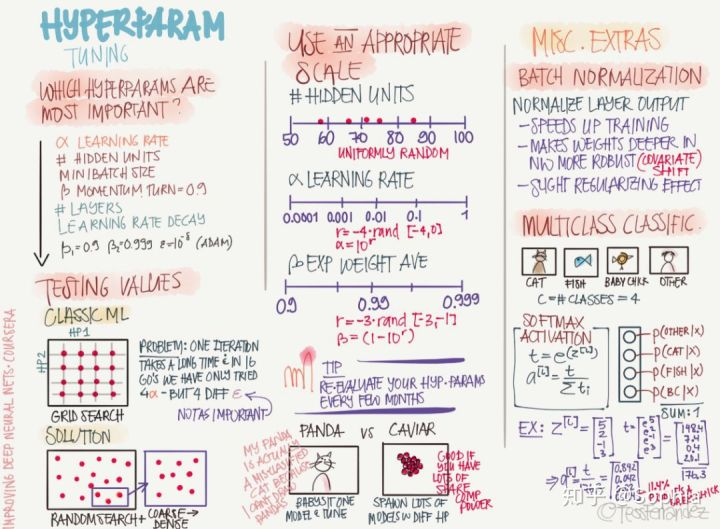 HYPERPARAM
TUNING
WHICH HYPERPARAMS ARE
MOST IMPORTANT?
α LEARNING RATE
# HIDDEN UNITS
MINIBATCH SIZE
β MOMENTUM TURN = 0.9
# LAYERS
LEARNING RATE DECAY
β₁=0.9 β₂=0.999 ε=10⁻⁸ (ADAM)
TESTING VALUES
CLASSIC ML
HP1
HP2
GRID SEARCH
PROBLEM: ONE ITERATION
TAKES A LONG TIME & IN 16
GO'S WE HAVE ONLY TRIED
4α - BUT 4 DIFF ε
NOT AS IMPORTANT
SOLUTION
RANDOM SEARCH +
COARSE →
DENSE
IMPROVING DEEP NEURAL NETS · COURSERA
USE AN APPROPRIATE
SCALE
# HIDDEN UNITS
50 60 70 80 90 100
UNIFORMLY RANDOM
α LEARNING RATE
0.0001 0.001 0.01 0.1 1
r = -4·rand [-4,0]
α = 10ʳ
β EXP WEIGHT AVE
0.9 0.99 0.999
r = -3·rand [-3,-1]
β = (1-10ʳ)
TIP
RE-EVALUATE YOUR HYP. PARAMS
EVERY FEW MONTHS
PANDA vs CAVIAR
MY PANDA
IS ACTUALLY
A MISCLASSIFIED
CAT BECAUSE
I CAN'T DRAW
PANDAS
BABYSIT ONE
MODEL & TUNE
GOOD IF
YOU HAVE
LOTS OF
SPARE
COMP
POWER
SPAWN LOTS OF
MODELS W DIFF HP
MISC. EXTRAS
BATCH NORMALIZATION
NORMALIZE LAYER OUTPUT
- SPEEDS UP TRAINING
- MAKES WEIGHTS DEEPER IN
NW MORE ROBUST (COVARIATE
SHIFT)
- SLIGHT REGULARIZING EFFECT
MULTICLASS CLASSIFIC.
CAT FISH BABY CHICK OTHER
C = # CLASSES = 4
SOFTMAX
ACTIVATION
t = e^(z^[L])
a^[L] = t / Σtᵢ
P(OTHER|X)
P(CAT|X)
P(FISH|X)
P(BC|X)
SUM: 1
EX: z^[L] = [5 2 -1 3] t = [e⁵ e² e⁻¹ e³] = [148.4 7.4 0.4 20.1]
176.3
⇒ a^[L] = t / Σtᵢ = [0.842 0.042
11.4%
@TessFerrandez